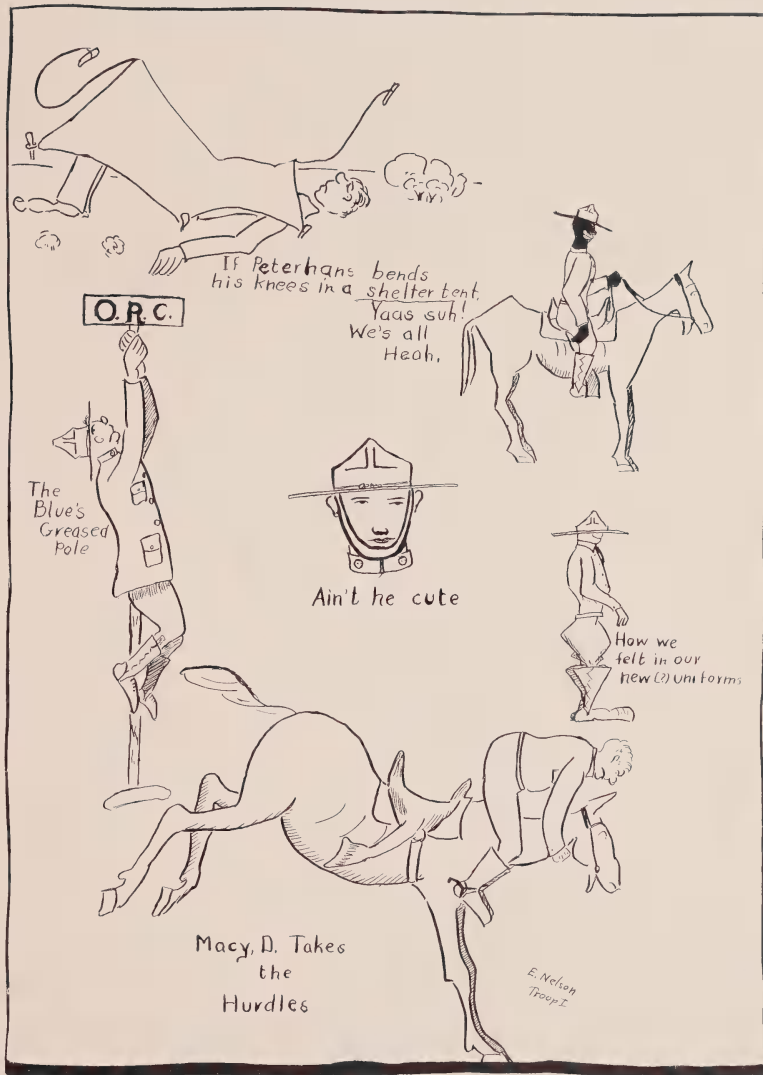 If Peterhans bends
his knees in a shelter tent.
Yaas suh!
We's all
Heah,
O.R.C.
The
Blue's
Greased
Pole
Ain't he cute
How we
felt in our
new (?) uniforms
Macy, D. Takes
the
Hurdles
E. Nelson
Troop I